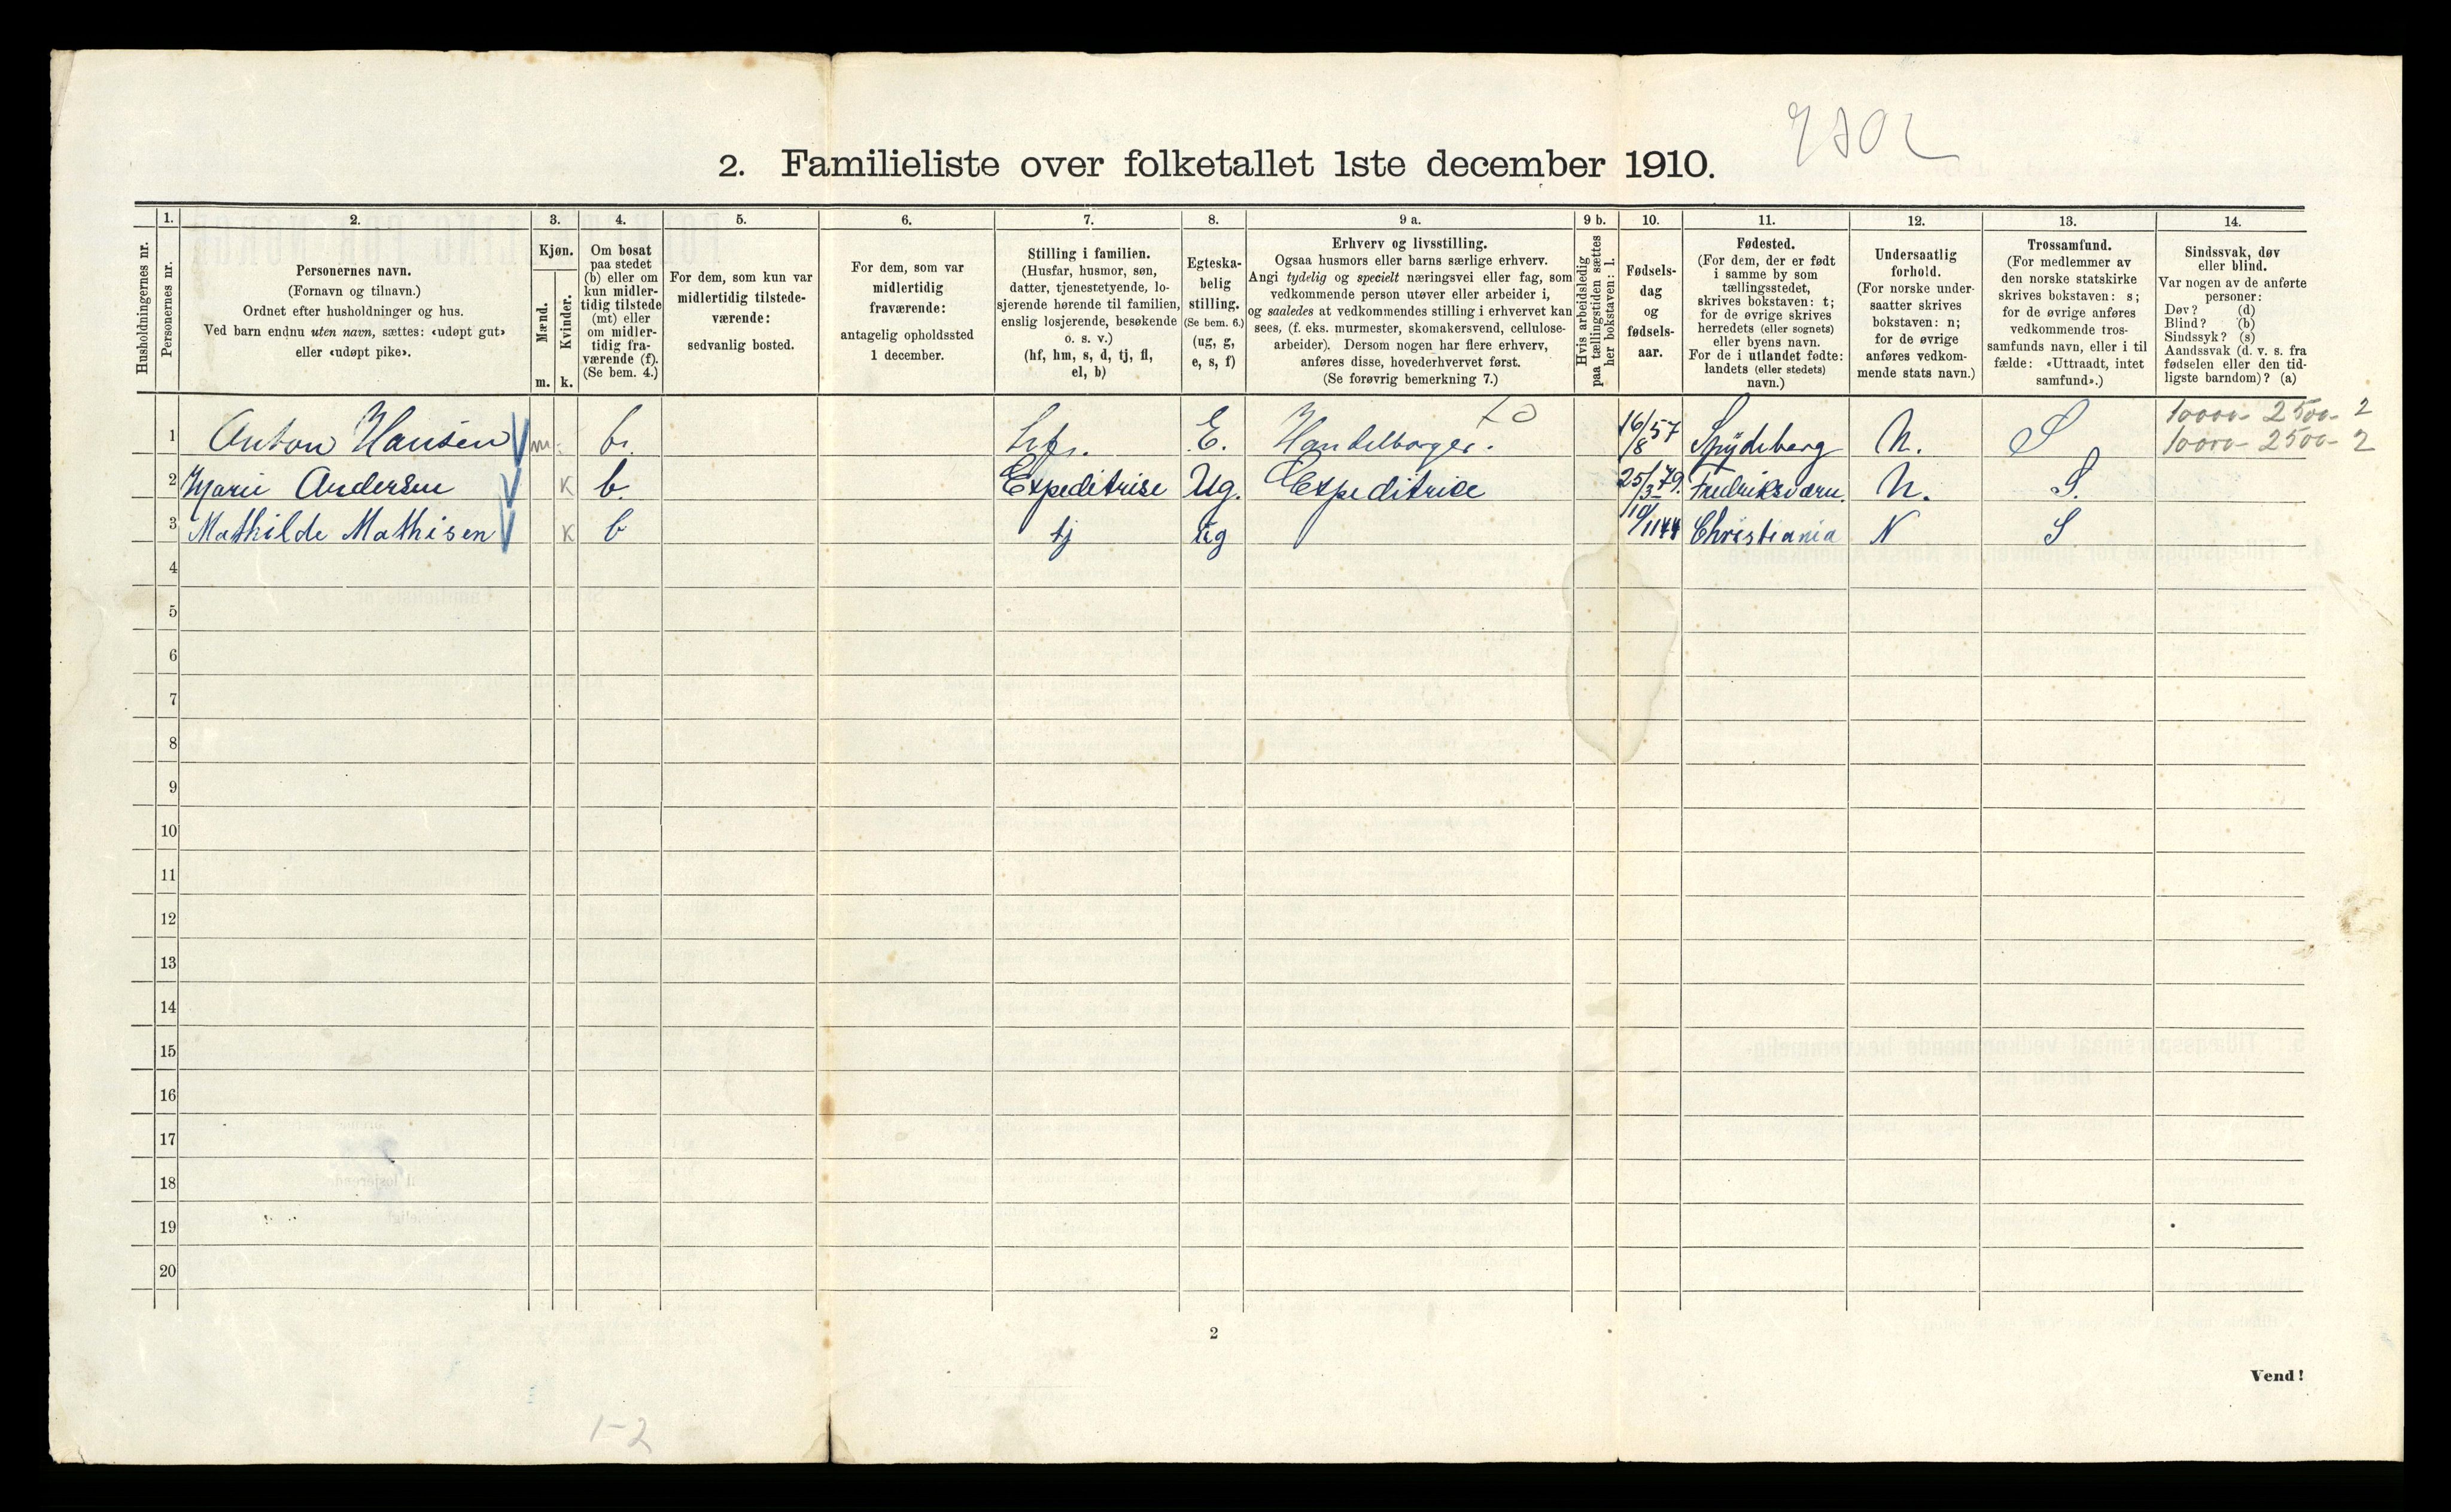 2. Familieliste over folketallet 1ste december 1910.
Husholdningernes nr.
1.
Personernes nr.
2.
Personernes navn.
(Fornavn og tilnavn.)
Ordnet efter husholdninger og hus.
Ved barn endnu uten navn, sættes: «udøpt gut»
eller «udøpt pike».
3.
Kjøn.
Mænd.
m.
Kvinder.
k.
4.
Om bosat
paa stedet
(b) eller om
kun midler-
tidig tilstede
(mt) eller
om midler-
tidig fra-
værende (f).
(Se bem. 4.)
5.
For dem, som kun var
midlertidig tilstede-
værende:
sedvanlig bosted.
6.
For dem, som var
midlertidig
fraværende:
antagelig opholdssted
1 december.
7.
Stilling i familien.
(Husfar, husmor, søn,
datter, tjenestetyende, lo-
sjerende hørende til familien,
enslig losjerende, besøkende
o. s. v.)
(hf, hm, s, d, tj, fl,
el, b)
8.
Egteska-
belig
stilling.
(Se bem. 6.)
(ug, g,
e, s, f)
9 a.
Erhverv og livsstilling.
Ogsaa husmors eller barns særlige erhverv.
Angi tydelig og specielt næringsvei eller fag, som
vedkommende person utøver eller arbeider i,
og saaledes at vedkommendes stilling i erhvervet kan
sees, (f. eks. murmester, skomakersvend, cellulose-
arbeider). Dersom nogen har flere erhverv,
anføres disse, hovederhvervet først.
(Se forøvrig bemerkning 7.)
9 b.
Hvis arbeidsledig
paa tællingstiden sættes
her bokstaven: l.
10.
Fødsels-
dag
og
fødsels-
aar.
11.
Fødested.
(For dem, der er født
i samme by som
tællingsstedet,
skrives bokstaven: t;
for de øvrige skrives
herredets (eller sognets)
eller byens navn.
For de i utlandet fødte:
landets (eller stedets)
navn.)
12.
Undersaatlig
forhold.
(For norske under-
saatter skrives
bokstaven: n;
for de øvrige
anføres vedkom-
mende stats navn.)
13.
Trossamfund.
(For medlemmer av
den norske statskirke
skrives bokstaven: s;
for de øvrige anføres
vedkommende tros-
samfunds navn, eller i til
fælde: «Uttraadt, intet
samfund».)
14.
Sindssvak, døv
eller blind.
Var nogen av de anførte
personer:
Døv? (d)
Blind? (b)
Sindssyk? (s)
Aandssvak (d. v. s. fra
fødselen eller den tid-
ligste barndom)? (a)
1 Anton Hansen m. b. E. Handelborger. 16/8 57 Spydeberg N. S 10000- 2500- 2
10000- 2500- 2
2 Marie Andersen K b. Expeditrise Ug. Expeditrice 25/3 79. Fredriksværn. N. S.
3 Mathilde Mathisen K b tj ug 10/11 44 Christiania N S
4
5
6
7
8
9
10
11
12
13
14
15
16
17
18
19
20
2
Vend!
1-2